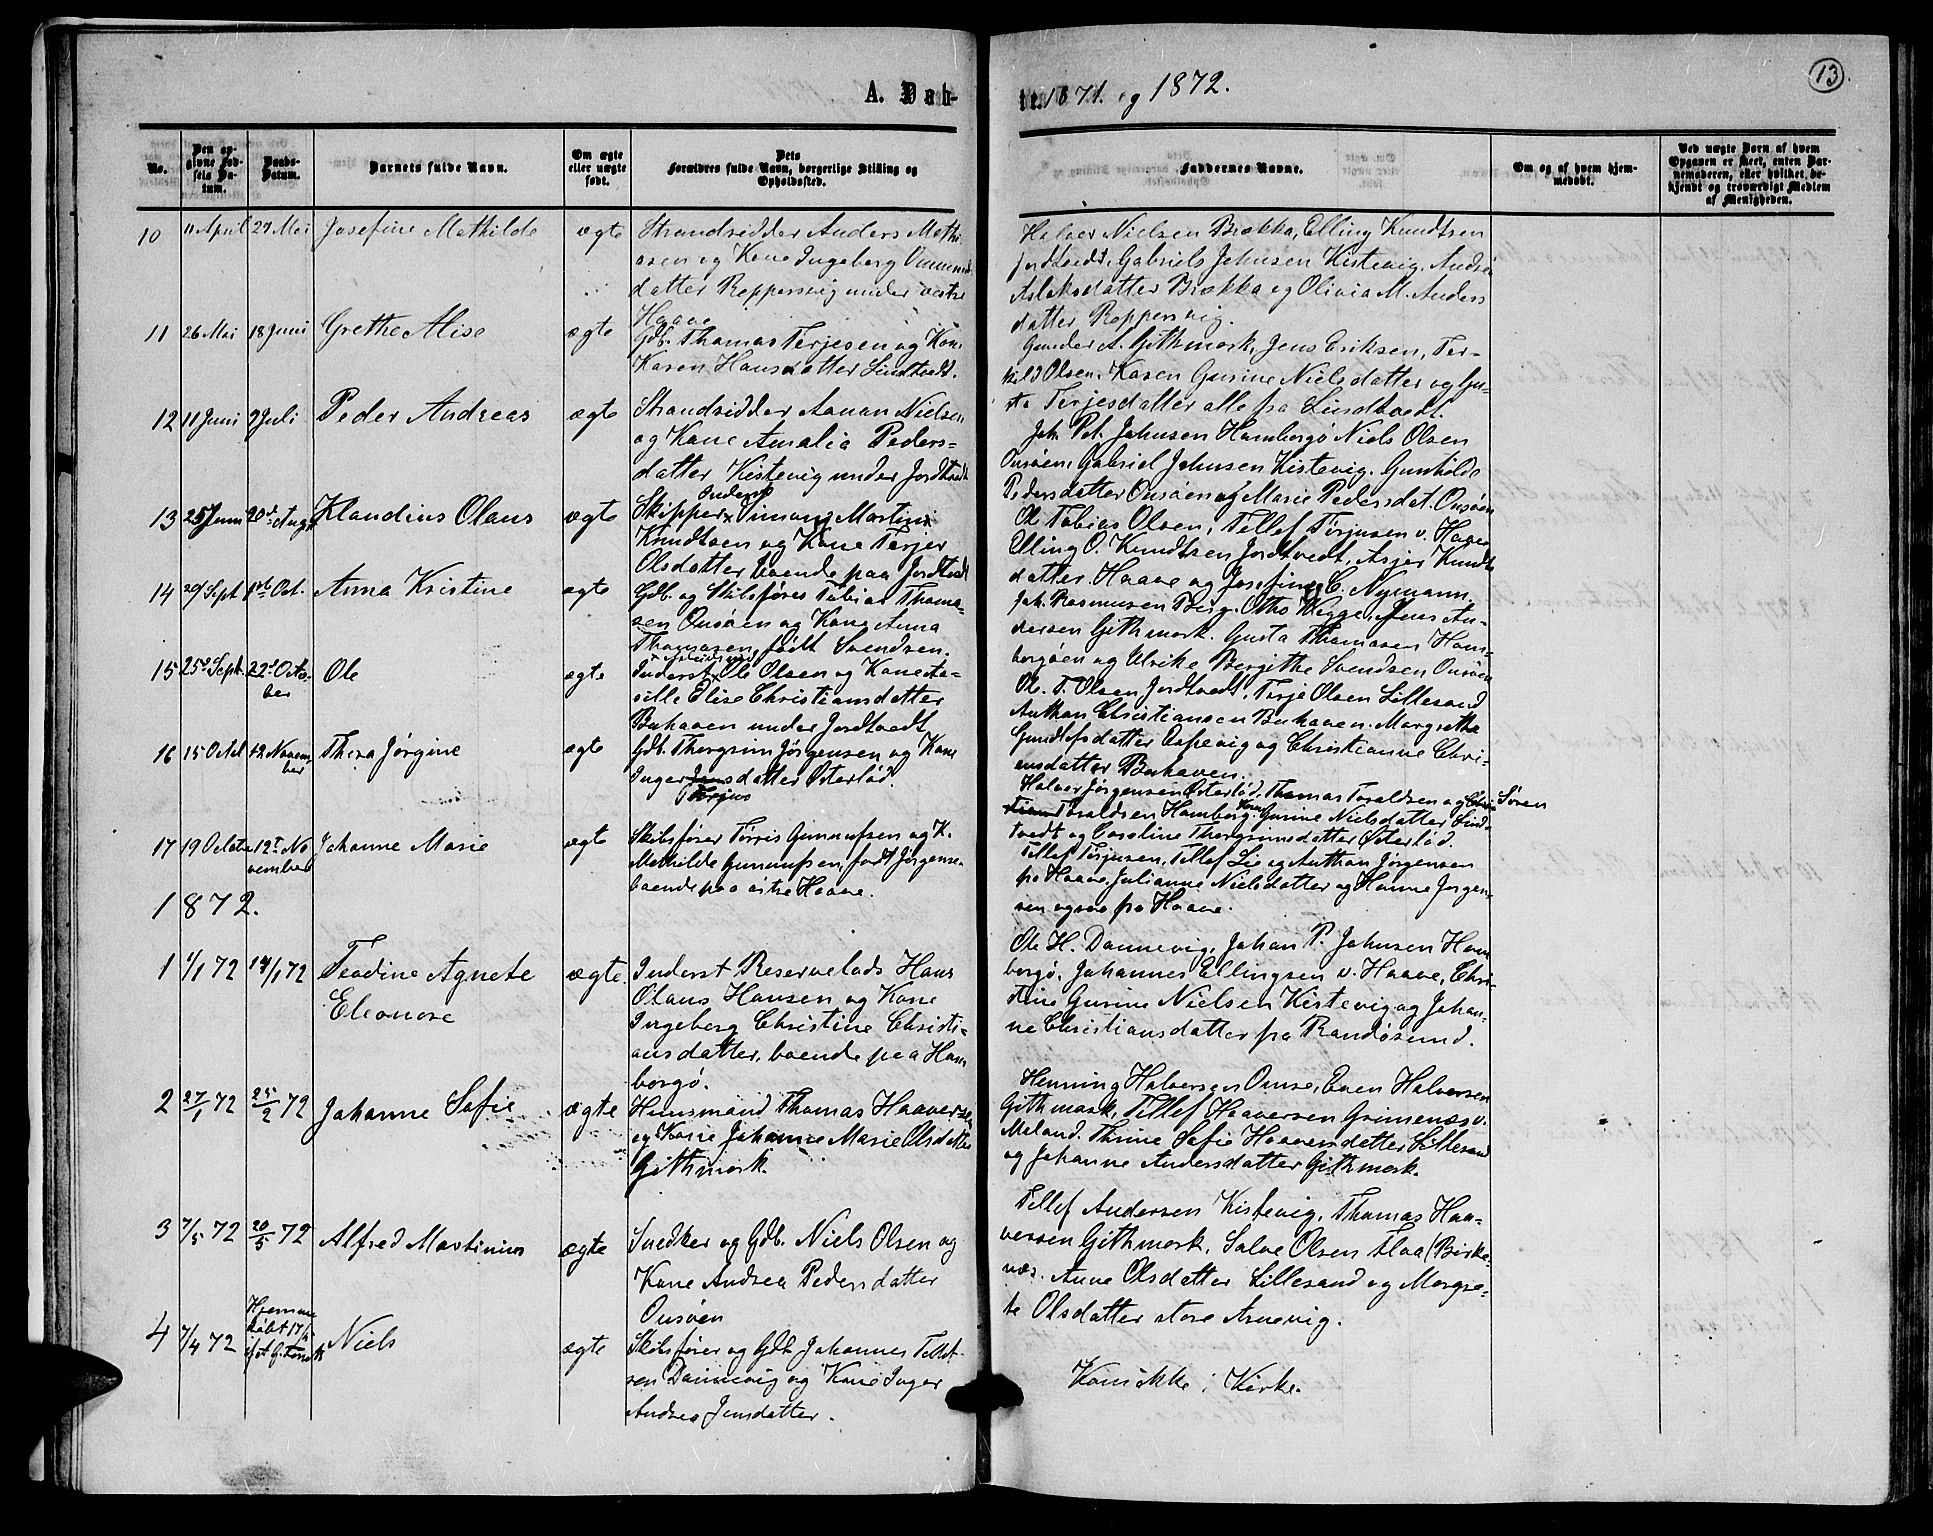 A. Døb-
te. 1871. og 1872.
13.
No.
Den op-
givne Fød-
sels Da-
tum.
Daabs-
Datum.
Barnets fulde Navn.
Om ægte
eller uægte
født.
Dets
Forældres fulde Navn, borgerlige Stilling og
Opholdssted.
Faddernes Navne.
Om og af hvem hjem-
medøbt.
Ved uægte Børn af hvem
Opgaven er skeet, enten Bar-
nemoderen, eller hvilket be-
kjendt og troværdigt Medlem
af Menigheden.
10 11 April 29 Mai Josefine Mathilde ægte Strandsidder Anders Mathi-
asen og Kone Ingeborg
datter Reppersvig under vestre
Haave
Halvor Nielsen Brækka, Elling Knudtsen
Jordtvedt, Gabriels Johnsen Kistevig. Andrea
Aslaksdatter Brækka og Olivia M. Anders
datter Reppersvig.
11 26 Mai 18 Juni Grethe Alise ægte Gdb. Thomas Terjesen og Kone
Karen Hansdatter Lindtvedt.
Gunder A. Githmark, Jens Eriksen, Ter-
kild Olsen. Karen Gurine Nielsdatter og Gu-
sta Terjesdatter alle fra Lindtvedt.
12 11 Juni 9 Juli Peder Andreas ægte Strandsidder Aanan Nielsen
og Kone Amalia Peders-
datter Kistevig under Jordtvedt
Joh. Pet. Johnsen Hamborgø Niels Olsen
Onsøen, Gabriel Johnsen Kistevig. Gunhilde
Pedersdatter Onsøen og Marie Pedersdat. Onsøen
13 25 Juni 20d Aug. Klaudius Olaus ægte Skipper Inderst Simon Martin
Knudtsen og Kone Terjer
Olsdatter boende paa Jordtvedt
Ol Tobias Olsen, Tellef Tørjusen v. Haave
Elling O. Knudtsen Jordtvedt, Asjer Knudts
datter Haave og Josefine C. Nymann.
14 20 Sept 1ste Oct. Anna Kristine ægte Gdb. og Skibsfører Tobias Thoma-
sen Onsøen og Kone Anna
Thomasen, født Svendsen.
Joh. Rasmusen Berg. Otho Kigge, Jens An-
dersen Githmark. Gusta Thomasen Ham-
borgøen og Ulrike Bergithe Svendsen Onsøen
15 25d Sept. 22d Octo-
ber Ole ægte Inderst Ole Olsen og Kone
Elise Christiansdatter
Buhaven under Jordtvedt
Ol. T. Olsen Jordtvedt, Terje Olsen Lillesand
Anthon Christiansen Buhaven. Margrethe
Gundlefsdatter Aspevig og Christianne Chri-
ansdatter Buhaven.
16 15 Octob 12 Novem-
ber Thea Jørgine ægte Gdb. Thorgrim Jørgensen og Kone
Inger Jensdatter Østerlid.
Terjus
Halvor Jørgensen Østerlid, Thomas Toraldsen og Søren
Toraldsen Hamborg. Gurine Nielsdatter Lind-
tvedt og Caroline Thorgrimsdatter Østerlid.
17 19 Octobr 12t No-
vember Johanne Marie ægte Skibsfører Tørris Gunnufsen og K.
Mathilde Gunnufsen, født Jørgensen
boende paa østre Haave.
Tellef Tørjusen, Tellef Lie og Anthon Jørgensen
fra Haave, Julianne Nielsdatter og Hanne Jørgen-
sen ogsaa fra Haave.
1872.
1 1/1 72 14/1 72 Teodine Agnete
Eleonore ægte Inderst Reservelods Hans
Olaus Hansen og Kone
Ingeborg Christine Christi-
ansdatter, boende paa Ham-
borgø.
Ole H. Dannevig, Johan P. Johnsen Ham-
borgø. Johannes Ellingsen v. Haave, Chri-
stine Gurine Nielsen Kistevig og Johan-
ne Christiansdatter fra Randøsund.
2 27/1 72 25/2 72 Johanne Sofie ægte Huusmand Thomas Haaversen
og Kone Johanne Marie Olsdatter
Githmark.
Henning Halversen Omre, Even Halversen
Githmark, Tellef Haaversen Grimenæs v.
Moland. Thrine Sofie Haaversdatter Lillesand
og Johanne Andersdatter Githmark.
3 7/5 72 20/5 72 Alfred Martinius ægte Snedker og Gdb. Niels Olsen og
Kone Andrea Pedersdatter
Onsøen
Tellef Andersen Kistevig, Thomas Haa-
versen Githmark, Salve Olsen Flaa (Birke-
næs. Anne Olsdatter Lillesand og Margre-
te Olsdatter store Arnevig.
4 7/4 72 Hjemme
døbt 17/
Niels ægte Skibsfører og Gdb. Johannes Tellef-
sen Dannevig og Kone Inger
Andrea Jensdatter.
Kom ikke i Kirke.